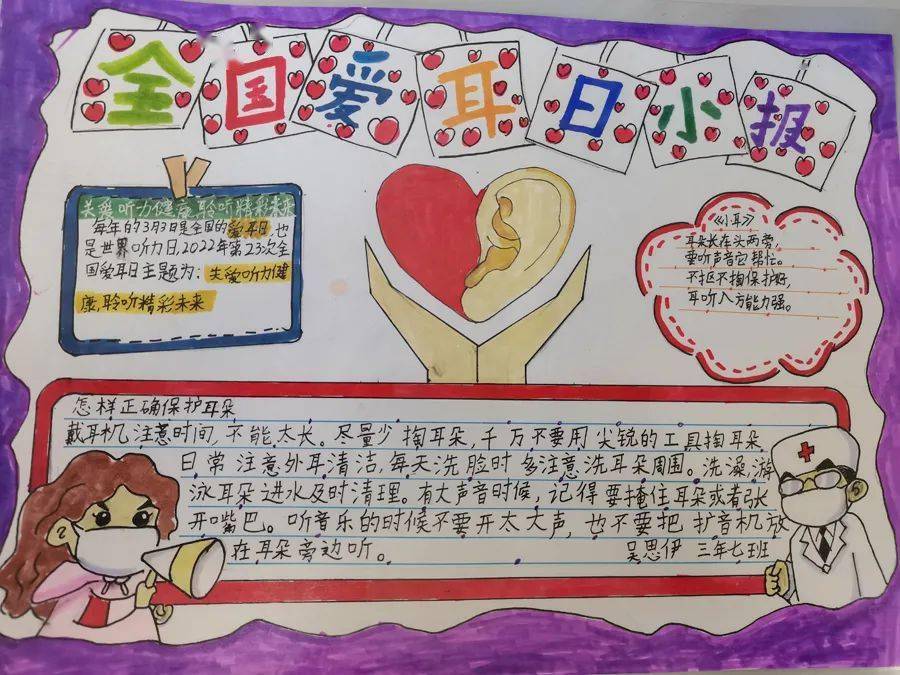 全国爱耳日小报
关爱听力健康,聆听精彩未来
每年的3月3日是全国的爱耳日,也
是世界听力日,2022年第23次全
国爱耳日主题为:关爱听力健
康,聆听精彩未来
《小耳》
耳朵长在头两旁,
要听声音它帮忙。
不抠不掏保护好,
耳听八方能力强。
怎样正确保护耳朵
戴耳机注意时间,不能太长。尽量少掏耳朵,千万不要用尖锐的工具掏耳朵
日常注意外耳清洁,每天洗脸时多注意洗耳朵周围。洗澡,游
泳耳朵进水及时清理。有大声音时候,记得要掩住耳朵或者张
开嘴巴。听音乐的时候不要开太大声,也不要把扩音机放
在耳朵旁边听。
吴思伊 三年七班